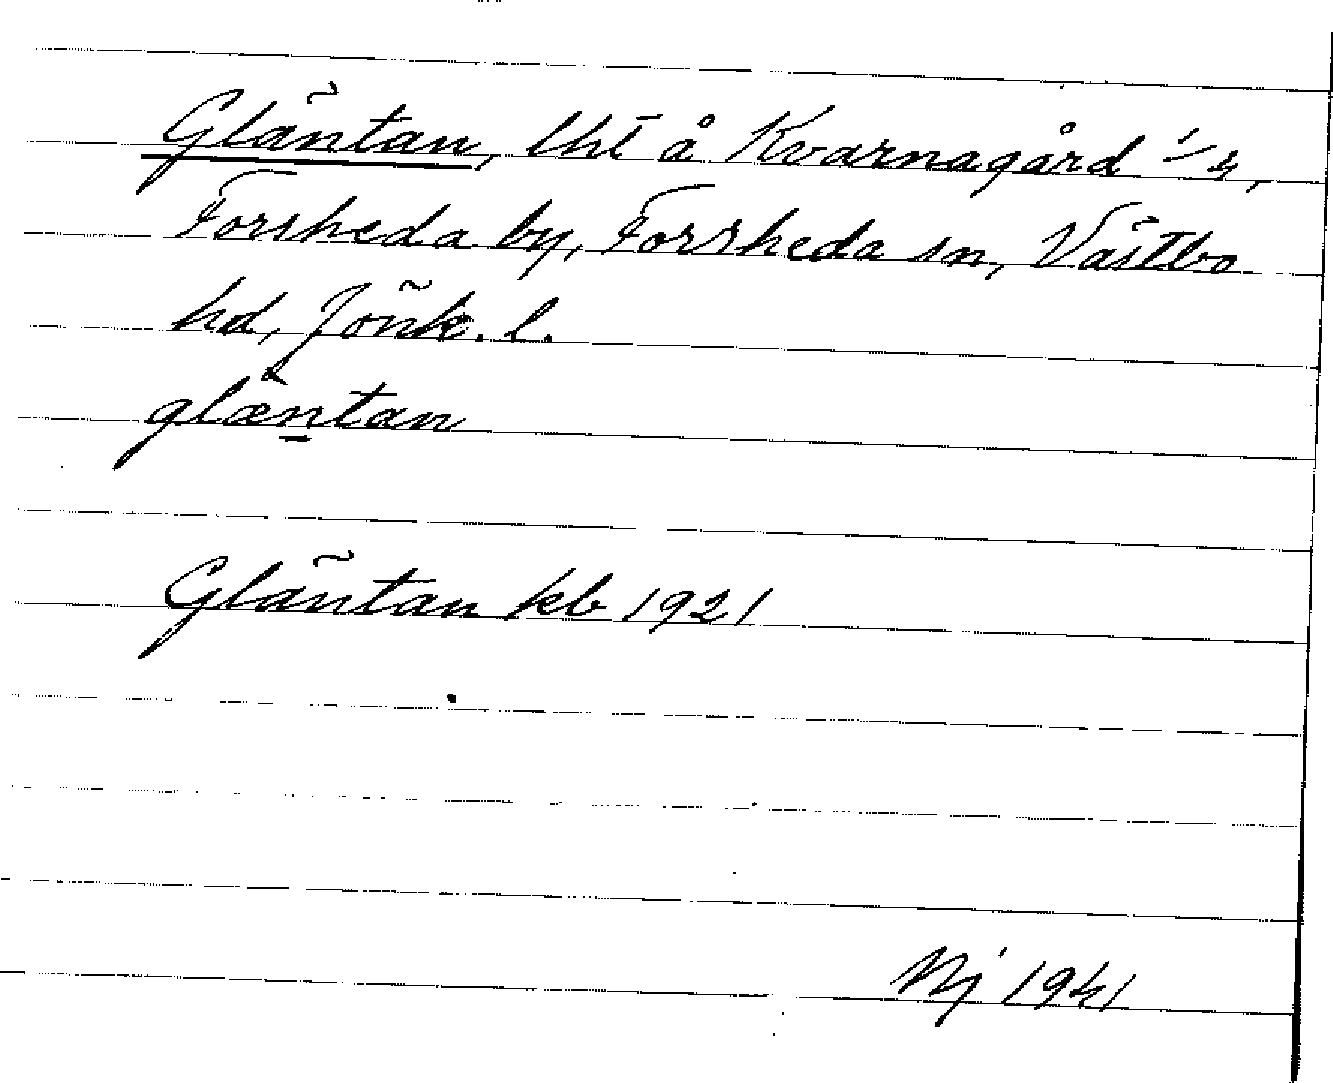 Gläntan, lht å Kvarnagård 1/4,
Forsheda by, Forsheda sn, Västbo
hd, Jönk. l.
glæ̀ntan
Gläntan kb 1921
Nj 1941